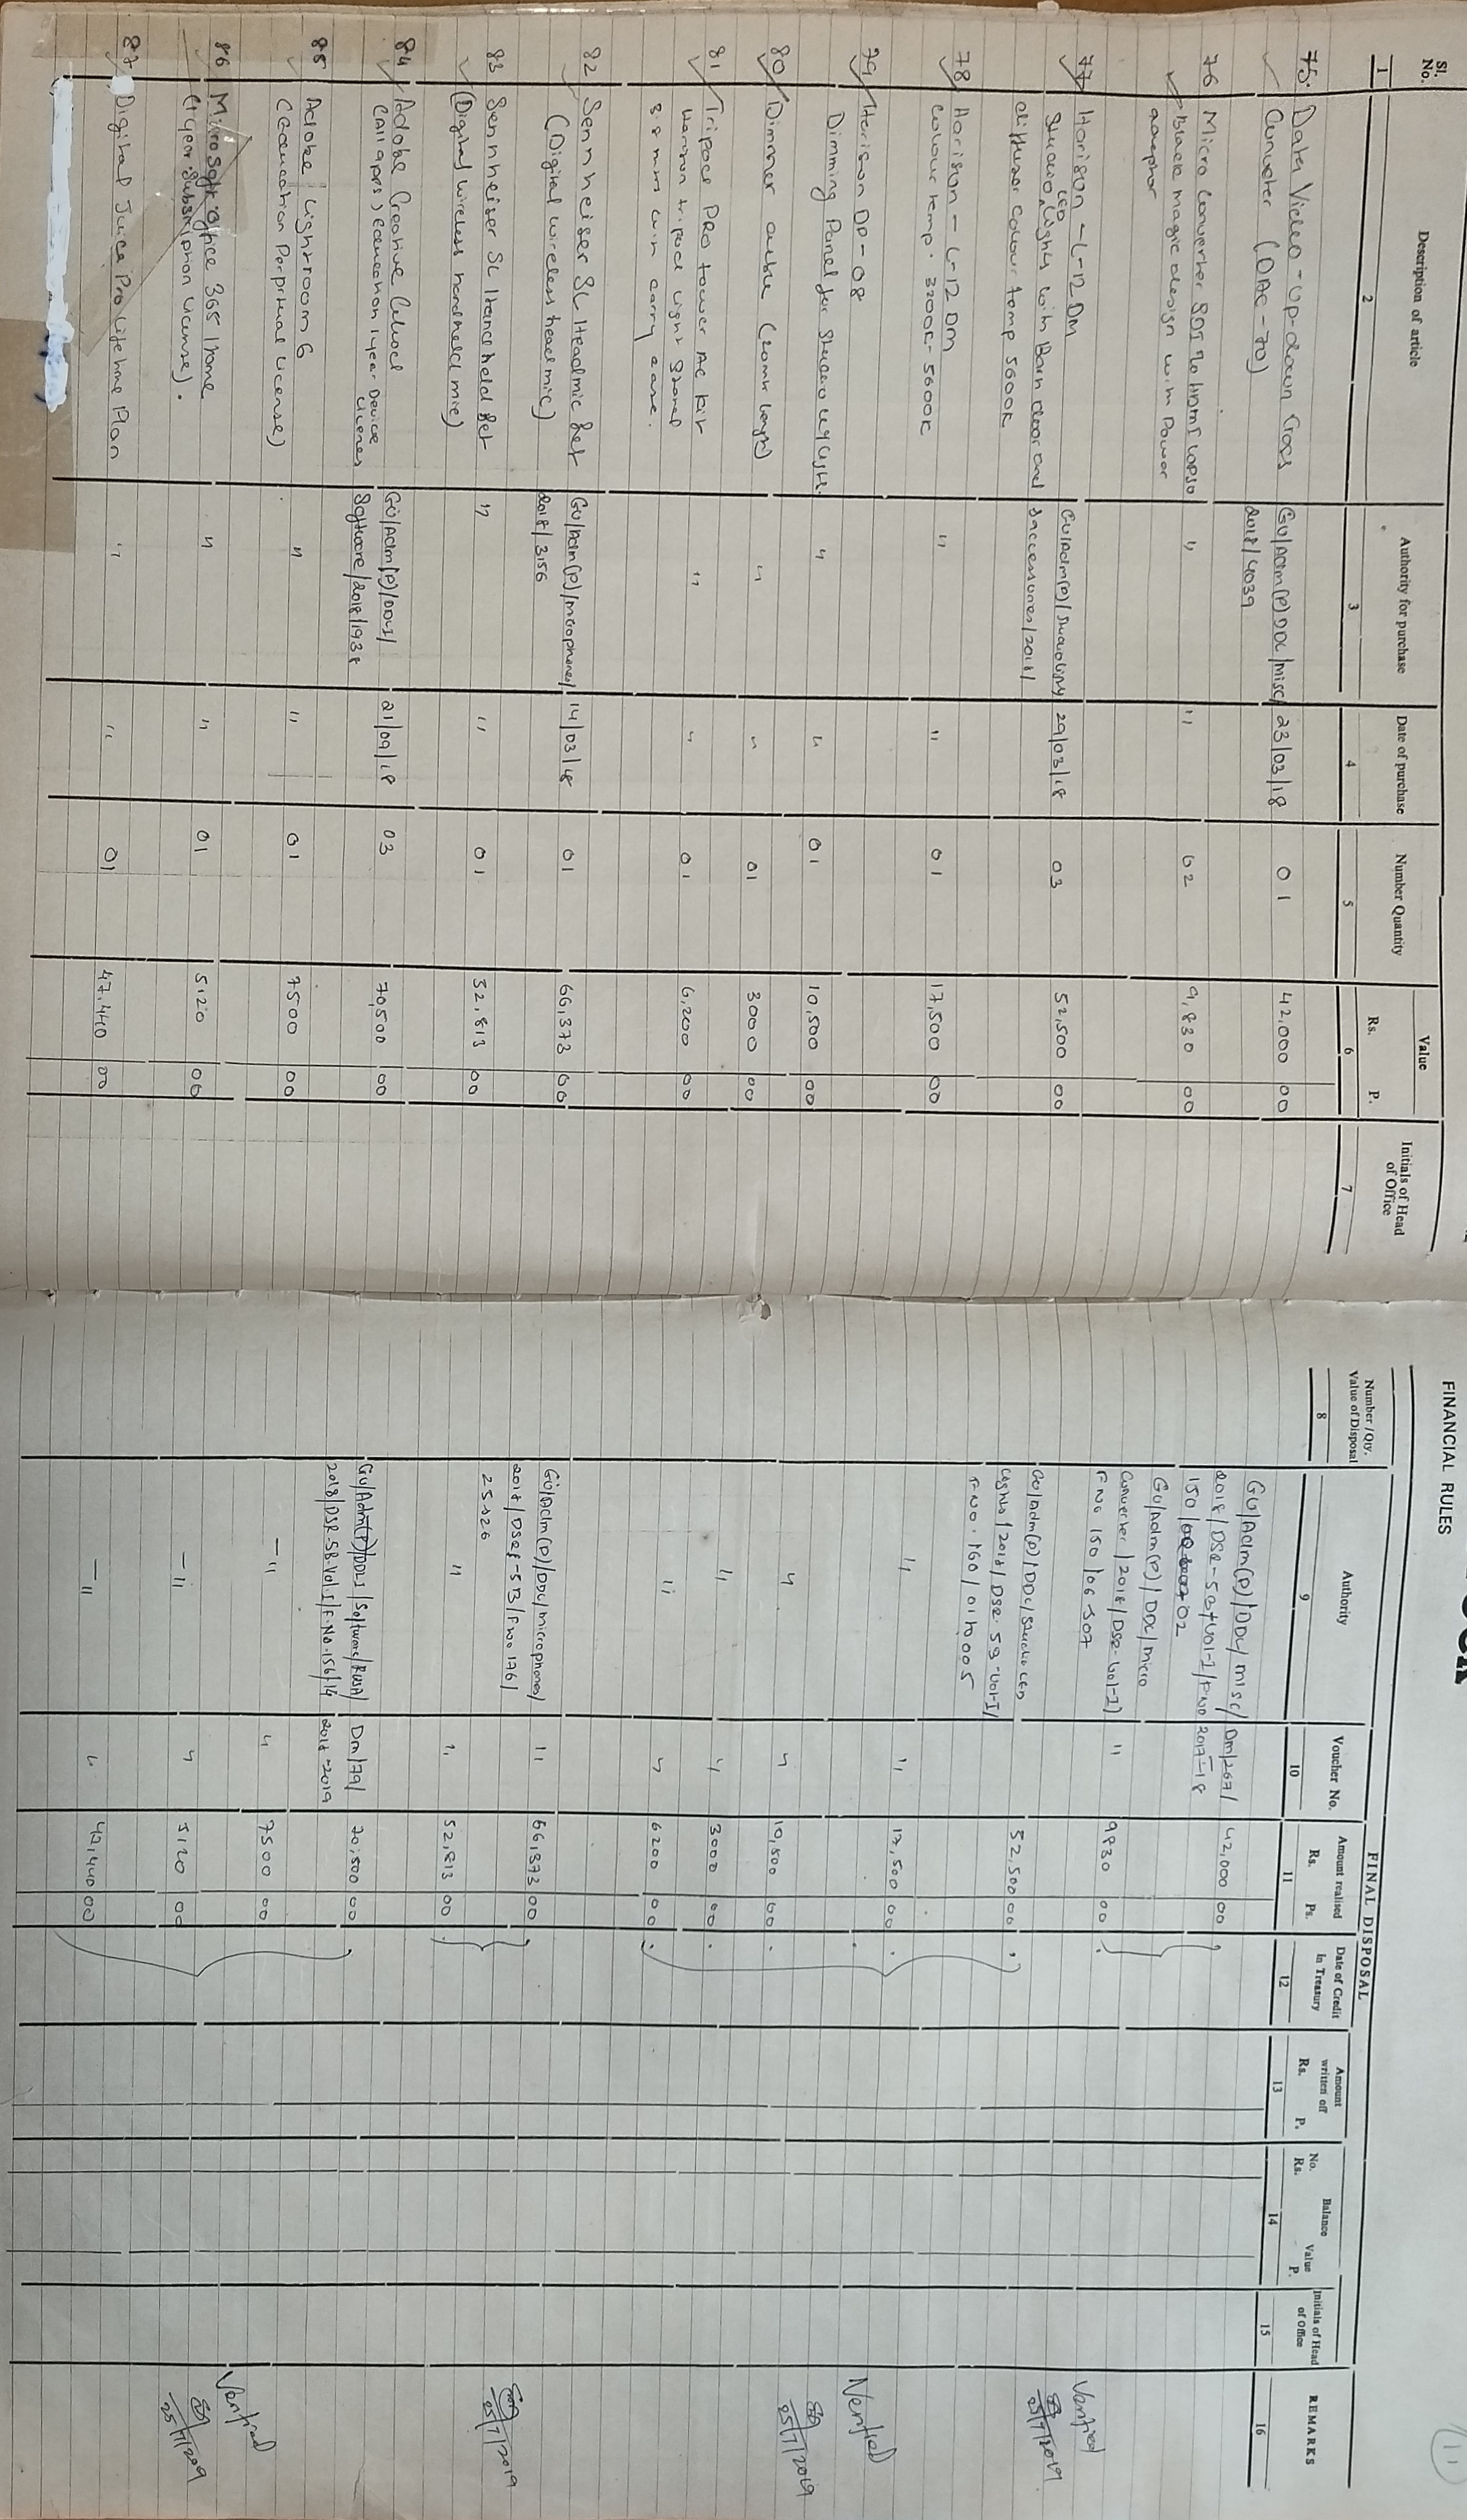 Sl. No.
Description of article
Authority for purchase
Date of purchase
Number Quantity
Value
Rs.
P.
Initials of Head of Office
1
2
3
4
5
6
7
75. Data Video - Up-down Cross GU/Adm(P)DDL/misc/ 23/03/18 01 42,000 00
Converter (DAC-70) 2018/4039
76 Micro Converter SDI to HDMI " " 02 9,830 00
Black magic design with Power
77 Horison - L-12 DM 29/03/18 03 52,500 00
Studio LED Lights with Barn door and accessories/2018/
diffuser colour temp 5600K
78 Horison - L-12 DM " " 01 17,500 00
colour temp. 3200K-5600K
79 Horison DP-08 " " 01 10,500 00
Dimming Panel for Studio
80 Dimmer cable " " 01 3000 00
81 Tripod PRO tower AC kit " " 01 6,200 00
tripod light stand
38 mm with carry case.
82 Sennheiser SL Headmic Set GU/Adm(P)/microphones/ 14/03/18 01 66,373 00
(Digital wireless head mic) 2018/3156
83 Sennheiser SL Hand held Set " " 01 52,813 00
(Digital wireless handheld mic)
84 Adobe Creative Cloud GU/Adm(P)/DDLI/ 21/09/18 03 70,500 00
(All apps) Education 1 year Device License Software/2018/1938
85 Adobe Lightroom 6 " " 01 7500 00
(Education Perpetual License)
86 Microsoft office 365 Home " " 01 5120 00
(1 year subscription license).
87 Digital Juice Pro Lifetime Plan " " 01 47,440 00
FINANCIAL RULES
FINAL DISPOSAL
Number/Qty. Value of Disposal
Authority
Voucher No.
Amount realised
Rs. Ps.
Date of Credit in Treasury
Amount written off
Rs. P.
Balance
No. Value
Rs. P.
Initials of Head of Office
REMARKS
8
9
10
11
12
13
14
15
16
11
GU/Adm(P)/DDL/misc/ Dm/267/ 42,000 00
2018/DSR- 2017-18
GU/Adm(P)/DDL/micro " 9830 00
Converter/2018/DSR-Vol-I/
F No 150/06-307
Verified
25/7/2019
GU/Adm(P)/DDL/Studio LED 52,500 00
Lights/2018/DSR-59-Vol-I/
F No. 160/
" " 17,500 00
" " 10,500 00
" " 3000 00
" " 6200 00
Verified
25/7/2019
GU/Adm(P)/DDL/microphones/ " 66,373 00
2018/DSR-5B/F No 176/
25 & 26
" " 52,813 00
25/7/2019
GU/Adm(P)/DDLI/Software/RUSA/ Dm/79/ 70,500 00
2018/DSR-5B-Vol.I/F.No.156/14 2018-2019
—"— " 7500 00
—"— " 5120 00
—"— " 47,440 00
Verified
25/7/2019